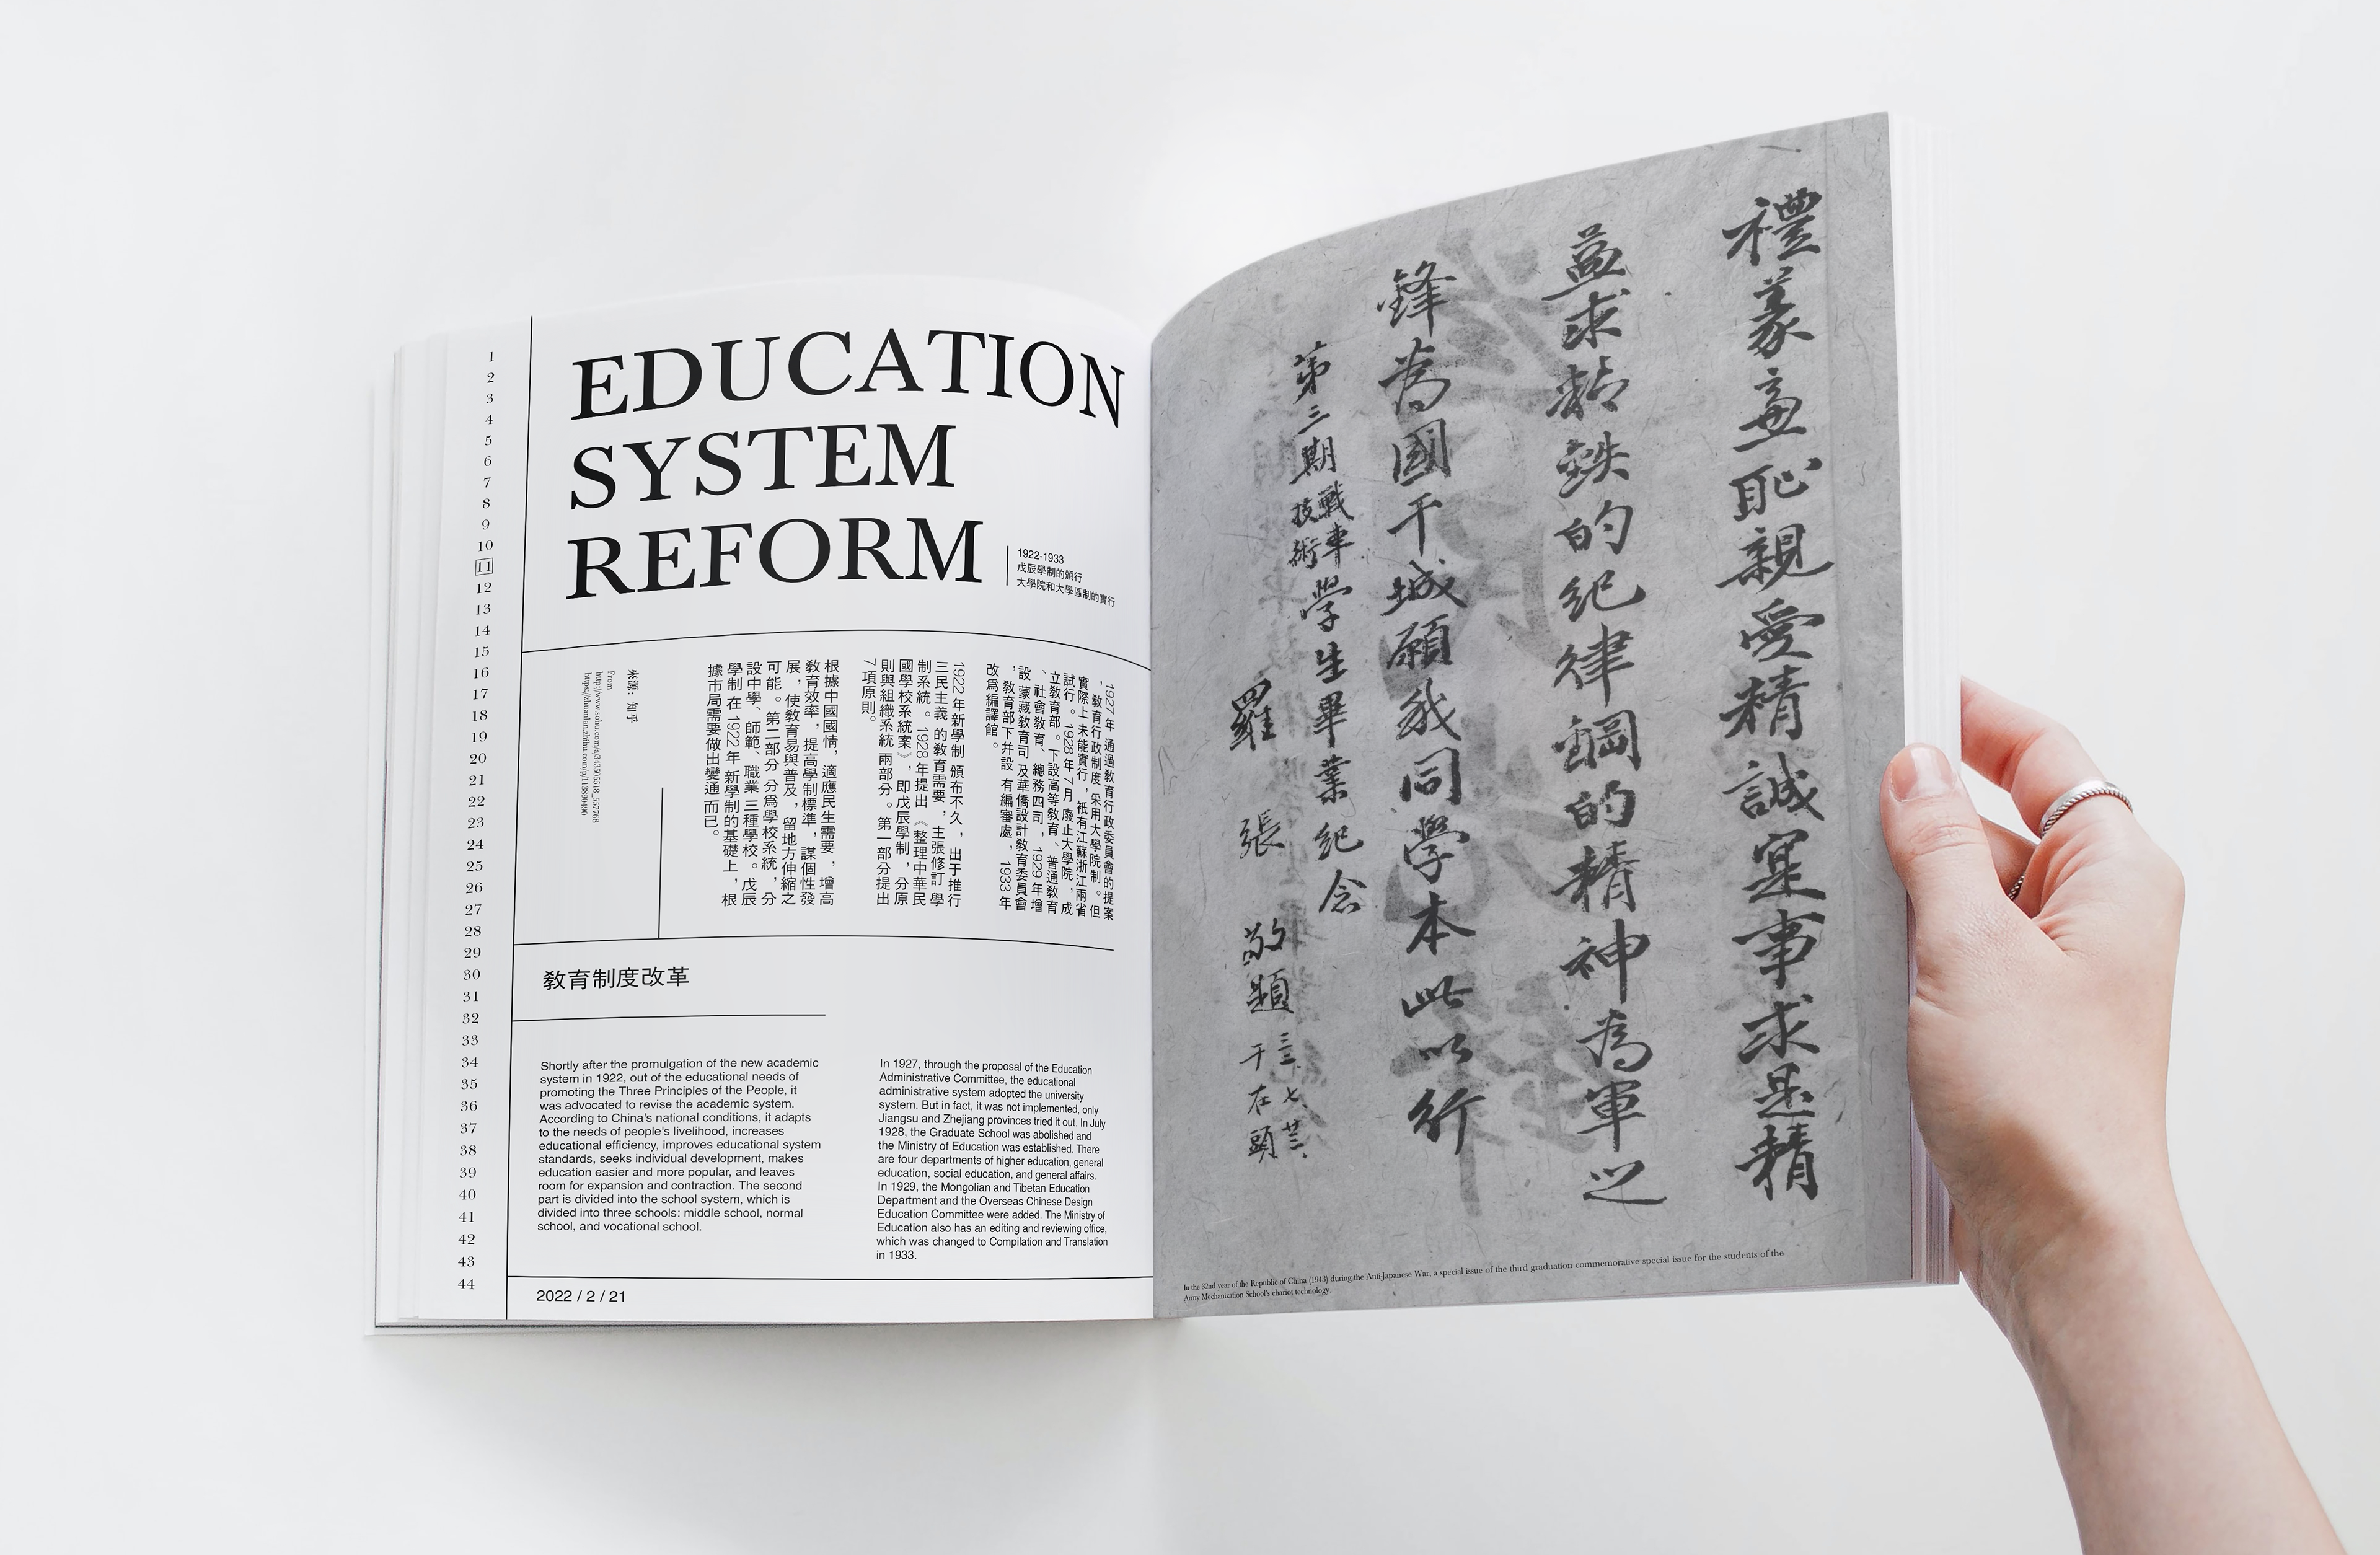 1
2
3
4
5
6
7
8
9
10
11
12
13
14
15
16
17
18
19
20
21
22
23
24
25
26
27
28
29
30
31
32
33
34
35
36
37
38
39
40
41
42
43
44
EDUCATION
SYSTEM
REFORM
1922-1933
戊辰學制的頒行
大學院和大學區制的實行
1927 年 通過敎育行政委員會的提案
，敎育行政制度 采用大學院制。但
實際上 未能實行，祇有江蘇浙江兩省
試行。1928 年 7 月 廢止大學院，成
立敎育部。下設高等敎育、普通敎育
、社會敎育、總務四司，1929 年 增
設 蒙藏敎育司 及華僑設計敎育委員會
，敎育部下幷設 有編審處，1933 年
改爲編譯館。
1922 年新學制 頒布不久，出于推行
三民主義 的敎育需要，主張修訂 學
制系統。1928 年提出 《整理中華民
國學校系統案》，即戊辰學制，分原
則與組織系統 兩部分。第一部分提出
7 項原則。
根據中國國情，適應民生需要，增高
敎育效率，提高學制標準，謀個性發
展，使敎育易與普及，留地方伸縮之
可能。第二部分 分爲學校系統，分
設中學、師範、職業 三種學校。戊辰
學制 在 1922 年 新學制的基礎上，根
據市局需要做出變通 而已。
來源: 知乎
From
敎育制度改革
Shortly after the promulgation of the new academic
system in 1922, out of the educational needs of
promoting the Three Principles of the People, it
was advocated to revise the academic system.
According to China's national conditions, it adapts
to the needs of people's livelihood, increases
educational efficiency, improves educational system
standards, seeks individual development, makes
education easier and more popular, and leaves
room for expansion and contraction. The second
part is divided into the school system, which is
divided into three schools: middle school, normal
school, and vocational school.
In 1927, through the proposal of the Education
Administrative Committee, the educational
administrative system adopted the university
system. But in fact, it was not implemented, only
Jiangsu and Zhejiang provinces tried it out. In July
1928, the Graduate School was abolished and
the Ministry of Education was established. There
are four departments of higher education, general
education, social education, and general affairs.
In 1929, the Mongolian and Tibetan Education
Department and the Overseas Chinese Design
Education Committee were added. The Ministry of
Education also has an editing and reviewing office,
which was changed to Compilation and Translation
in 1933.
2022 / 2 / 21
禮義廉恥親愛精誠寔事求是精
益求精鉄的紀律鋼的精神為軍之
鋒為國干城願我同學本此以行
第三期戰車技術學生畢業紀念
羅張敬題
In the 32nd year of the Republic of China (1943) during the Anti-Japanese War, a special issue of the third graduation commemorative special issue for the students of the
Army Mechanization School's chariot technology.